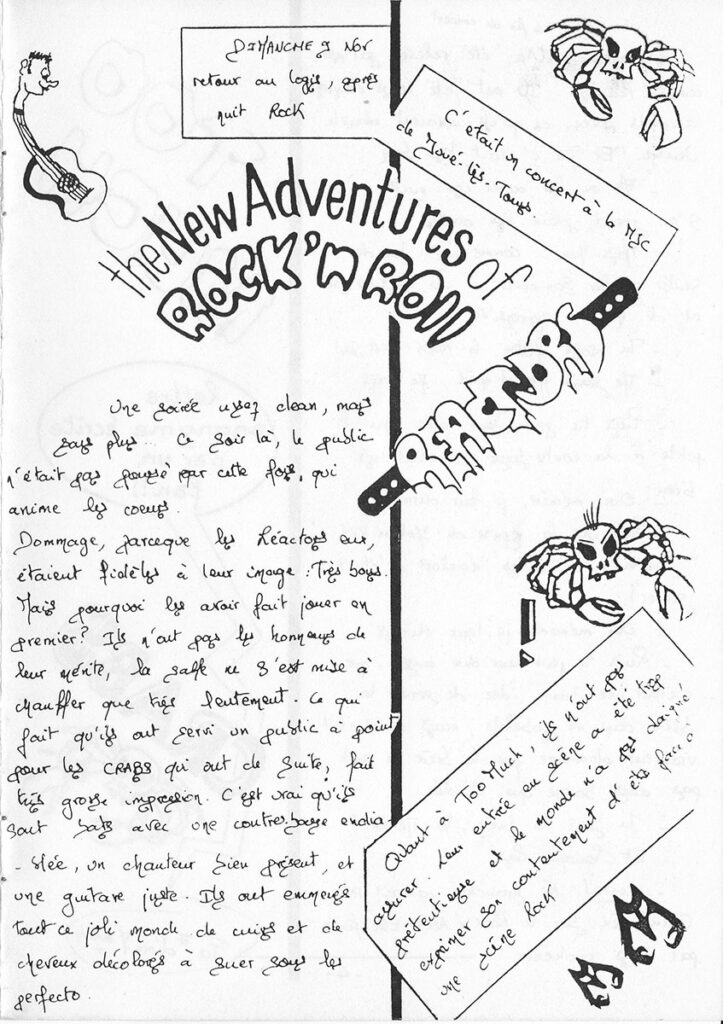 DIMANCHE 9 NOV
retour au logis, après
nuit Rock
C'était un concert à la MJC
de Joué-lès-Tours
the New Adventures of
ROCK'n ROll
REACTORS
Une soirée assez clean, mais
sans plus... Ce soir là, le public
n'était pas poussé par cette fois, qui
anime les coeurs.
Dommage, parceque les Réactors eux,
étaient fidèles à leur image. Très bons.
Mais pourquoi les avoir fait jouer en
premier? Ils n'ont pas les honneurs de
leur mérite, la salle ne s'est mise à
chauffer que très lentement. Ce qui
fait qu'ils ont servi un public à point
pour les CRABS qui ont de suite, fait
très grosse impression. C'est vrai qu'ils
sont bats avec une contrebasse endia-
-blée, un chanteur bien présent, et
une guitare juste. Ils ont emmenés
tout ce joli monde de cuirs et de
cheveux décolorés à suer sous les
perfecto.
!
Quant à Too Much, ils n'ont pas
assurer. Leur entrée en scène a été trop
prétentieuse et le monde n'a pas daigné
exprimer son contentement d'été face à
une scène Rock